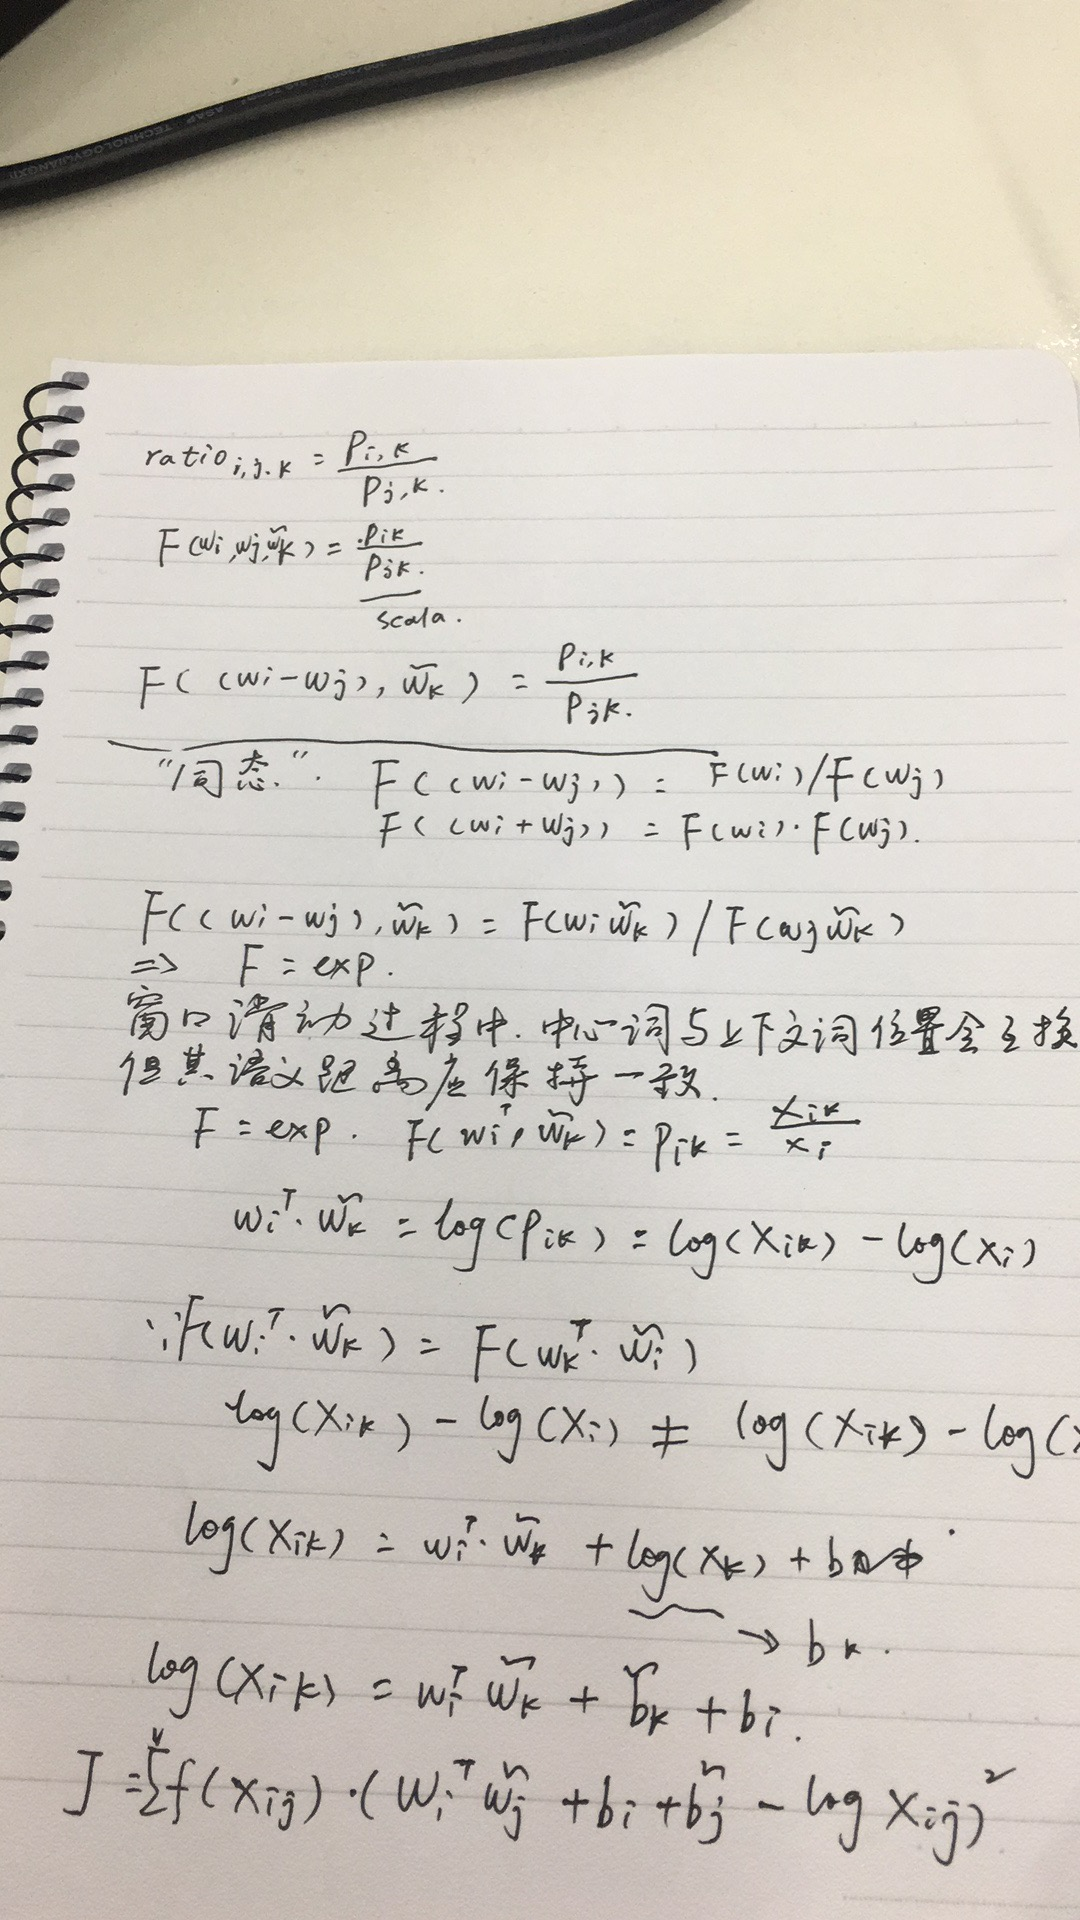 ASAP TECHNOLOGY(JIANGXI
ratio i,j,k = Pi,k / Pj,k.
F(wi,wj,w̃k) = Pik / Pjk.
scala.
F((wi-wj), w̃k) = Pi,k / Pjk.
"同态." F((wi-wj)) = F(wi)/F(wj)
F((wi+wj)) = F(wi)·F(wj).
F((wi-wj), w̃k) = F(wi w̃k) / F(wj w̃k)
=> F = exp.
窗口滑动过程中. 中心词与上下文词位置会互换
但其语义距离应保持一致.
F = exp. F(wiᵀ, w̃k) = Pik = Xik / Xi
wiᵀ·w̃k = log(Pik) = log(Xik) - log(Xi)
∵ F(wiᵀ·w̃k) = F(wkᵀ·w̃i)
log(Xik) - log(Xi) ≠ log(Xik) - log(X
log(Xik) = wiᵀ·w̃k + log(Xk) + b
→ bk.
log(Xik) = wiᵀ w̃k + b̃k + bi.
J = Σ^V f(Xij)·(Wiᵀ w̃j + bi + b̃j - log Xij)²